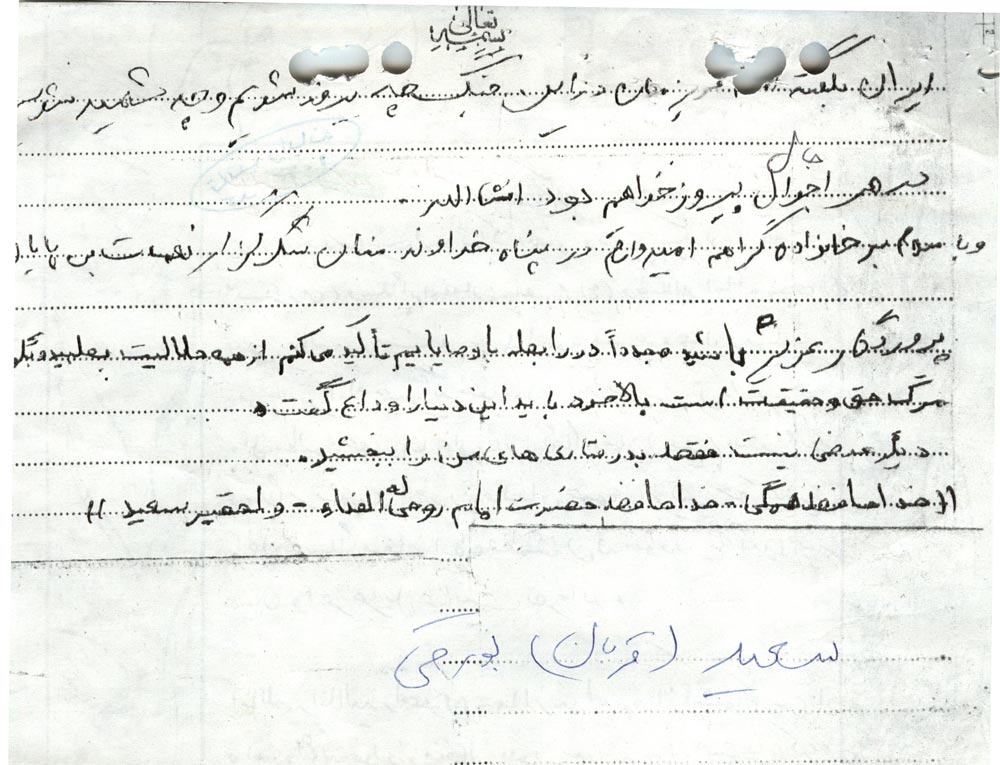 بسمه تعالی
ایران بگفته عزیزمان در این جنگ چه پیروز شویم و چه شهید شویم
در هر احوال پیروز خواهم بود انشاالله.
حال
و با سلام بر خانواده گرامیم امیدوارم در پناه خداوند منان شکرگزار نعمت بی پایان
پروردگار عزیز باشید مجدداً در رابطه با وصایایم تأکید می کنم از همه حلالیت بطلبید و بگو
مرگ حق و حقیقت است بالاخره باید این دنیا را وداع گفت.
دیگر عرضی نیست فقط بدرفتاری های مرا را ببخشید.
((خداحافظ همگی - خداحافظ حضرت امام روحی له الفداء - والحقیر سعید))
سعید (قربان)